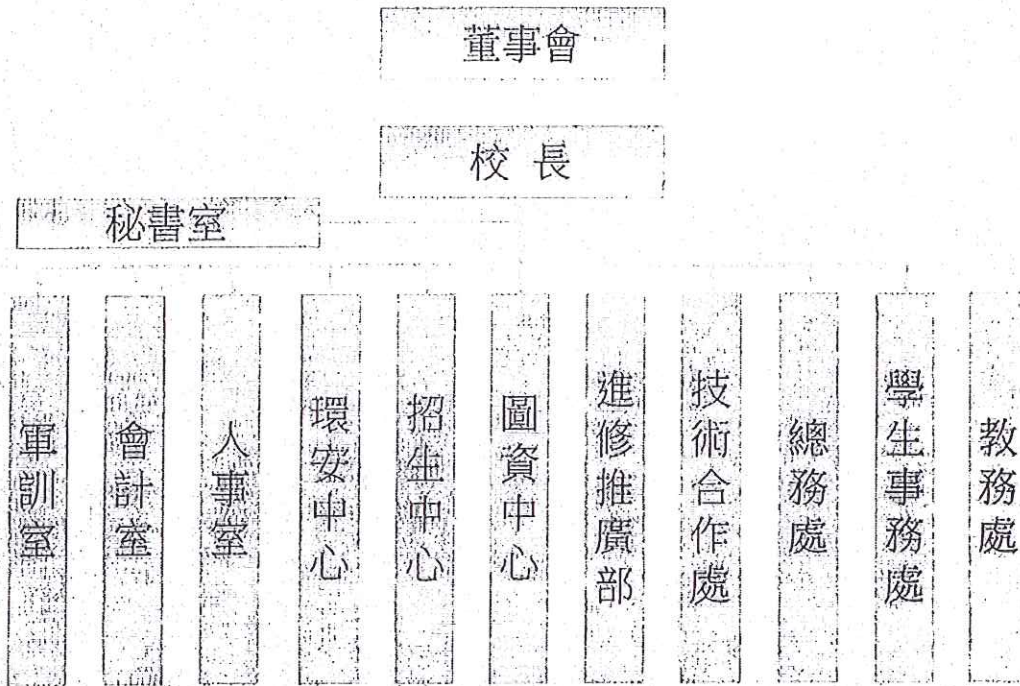 董事會
校長
秘書室
軍訓室
會計室
人事室
環安中心
招生中心
圖資中心
進修推廣部
技術合作處
總務處
學生事務處
教務處